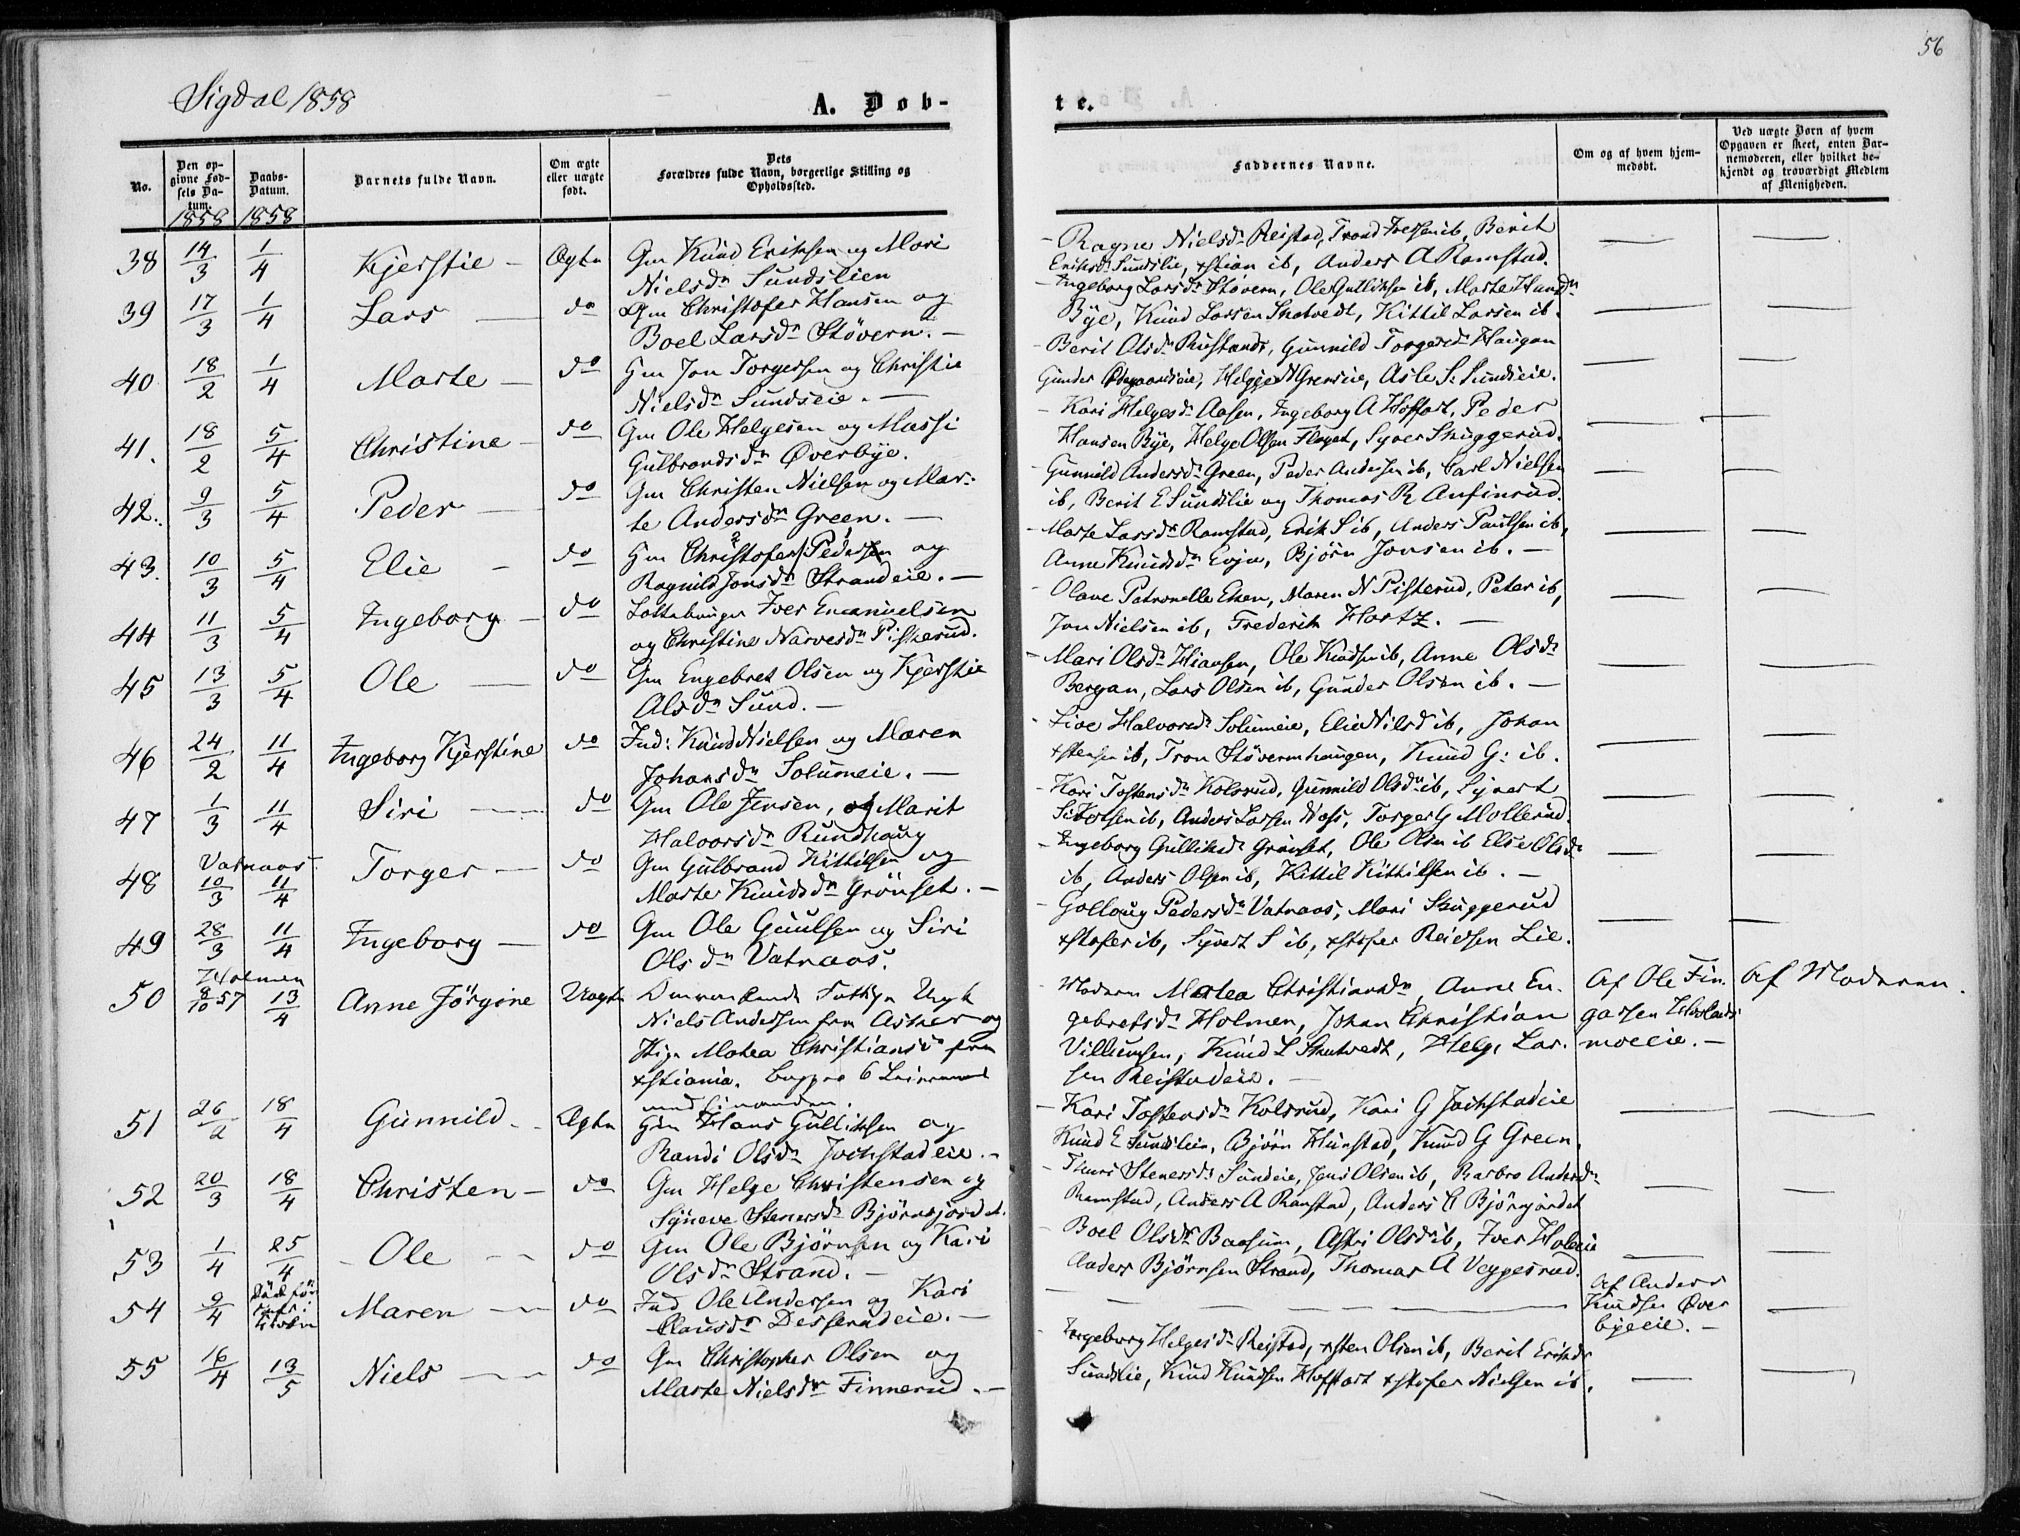 56
Sigdal 1858
A. Døb-
te.
No.
Den op-
givne Fød-
sels Da-
tum.
1858
Daabs-
Datum.
1858
Barnets fulde Navn.
Om ægte
eller uægte
født.
Dets
Forældres fulde Navn, borgerlige Stilling og
Opholdssted.
Faddernes Navne.
Om og af hvem hjem-
medøbt.
Ved uægte Børn af hvem
Opgaven er skeet, enten Bar-
nemoderen, eller hvilket be-
kjendt og troværdigt Medlem
af Menigheden.
38 14/3 1/4 Kjerstie - Ægte Gm Knud Eriksen og Mari
Nielsdr Sundslien
- Ragne Nielsdr Reistad, Trond Iversen ib, Berit
Eriksdr Sundslie, xstian ib, Anders A Ramstad.
39 17/3 1/4 Lars - do Gm Christofer Hansen og
Boel Larsdr Støvern. -
- Ingeborg Larsdr Støvern, Ole Gulliksen ib, Marte Hansdr
Bye, Knud Larsen Skatvedt, Kittil Larsen ib.
40 18/2 1/4 Marte - do Gm Jon Torgersen og Christie
Nielsdr Sundseie. -
- Berit Olsdr Rustand, Gunnild Torgersdr Haugan
Gunder Ødegaardseie, Helge N Grenseie, Asle S. Sundseie.
41. 18/2 5/4 Christine - do Gm Ole Helgesen og Massi
Gulbrandsdr Øverbye.
- Kari Helgesdr Aasen, Ingeborg A Hoffart, Peder
Hansen Bye, Helge Olsen Flagan, Syver Skuggerud.
42. 9/3 5/4 Peder - do Gm Christen Nielsen og Mar-
te Andersdr Green. -
- Gunnild Andersdr Green, Peder Andersen ib, Carl Nielsen
ib, Berit E Sundslie og Thomas R Anfinrud.
43. 10/3 5/4 Elie - do Gm Christofer Pedersen og
Ragnild Jonsdr Strandeie. -
- Marte Larsdr Ramstad, Erik S ib, Anders Paulsen ib,
Anne Knudsdr Evju, Bjørn Jonsen ib. -
44 11/3 5/4 Ingeborg - do Iver Emanuelsen
og Christine Narvesdr Pisterud.
- Olave Petronelle Essen, Maren N Pisterud, Peter ib,
Jon Nielsen ib, Frederik Hartz. -
45 13/3 5/4 Ole - do Gm Engebret Olsen og Kjerstie
Alsdr Sund. -
- Mari Olsdr Hiansen, Ole Knudsen ib, Anne Olsdr
Bergan, Lars Olsen ib, Gunder Olsen ib. -
46 24/2 11/4 Ingeborg Kjerstine do Ind: Knud Nielsen og Maren
Johansdr Solumeie. -
- Live Halvorsdr Solumeie, Elie Nilsd ib, Johan
xstensen ib, Tron Støvernhaugen, Knud G: ib.
47 1/3 11/4 Siri - do Gm Ole Jensen, og Marit
Halvorsdr Rundhaug
- Kari Tostensdr Kolsrud, Gunnild Olsdr ib, Syvert
ib, Anders Larsen Moss, Torger G Mollerud.
Vatnaas
48 10/3 11/4 Torger - do Gm Gulbrand Kittilsen og
Marte Knudsdr Grønset. -
- Ingeborg Gulliksdr Grønset, Ole Olsen ib Elsie Olsdr
ib, Anders Olsen ib, Kittil Kittilsen ib. -
49 28/3 11/4 Ingeborg - do Gm Ole Guulsen og Siri
Olsdr Vatnaas.
- Gollaug Pedersdr Vatnaas, Mari Skuggerud
xstofer ib, Syvert S ib, xstofer Reiersen Lie.
Holmen
50 8/10 57 13/4 Anne Jørgine Uægte Omvankende Fattige Ungk
Niels Andersen fra Asker og
Pige Matea Christiansdr fra
xstiania.
- Moderen Matea Christiansdr, Anne En-
gebretsdr Holmen, Johan Christian
Villumsen, Knud L Skatvedt, Helge Lar-
sen Reistadeie. -
Af Ole Fin-
garsen Hovlands
moeeie. -
Af Moderen.
51 26/2 18/4 Gunnild - Ægte Gm Hans Gulliksen og
Randi Olsdr Jochstadeie. -
- Kari Tostensdr Kolsrud, Kari G Jochstadeie
Knud E Sundslien, Bjørn Hunstad, Knud G Green.
52 20/3 18/4 Christen - do Gm Helge Christensen og
Syneve Stenersdr Bjørnsjordet.
- Thuri Stenersdr Sundeie, Jens Olsen ib, Barbro Andersdr
Ramstad, Anders A Ramstad, Anders C Bjørnjordet
53 1/4 25/4 - Ole - - do Gm Ole Bjørnsen og Kari
Olsdr Strand. -
- Boel Olsdr Baasum, Astri Olsd ib, Iver Holeeie
Anders Bjørnsen Strand, Thomas A Veggesrud.
54 9/4 Maren - do Ind Ole Andersen og Kari
Clausdr Desserudeie. -
Af Anders
Knudsen Øver
byeeie. -
55 16/4 13/5 Niels - do Gm Christopher Olsen og
Marte Nielsdr Finnerud. -
- Ingeborg Helgesdr Reistad, xsten Olsen ib, Berit Eriksdr
Sundslie, Knud Knudsen Hoffart xstofer Nielsen ib.